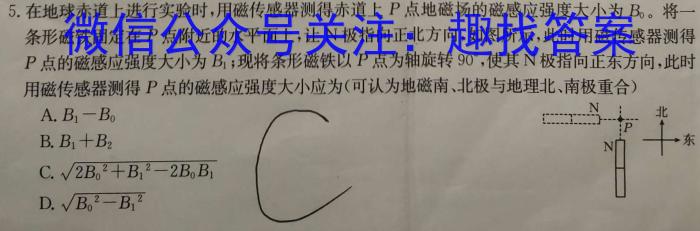 5.在地球赤道上进行实验时,用磁传感器测得赤道上P点地磁场的磁感应强度大小为B₀。将一
条形磁铁固定在P点附近的水平面上,让N极指向正北方向,如图所示,此时用磁传感器测得
微信公众号关注:趣找答案
P点的磁感应强度大小为B₁;现将条形磁铁以P点为轴旋转90°,使其N极指向正东方向,此时
用磁传感器测得P点的磁感应强度大小应为(可认为地磁南、北极与地理北、南极重合)
A. B₁-B₀
B. B₁+B₂
C. √(2B₀²+B₁²-2B₀B₁)
D. √(B₀²-B₁²)
N
P
N
北
东
C